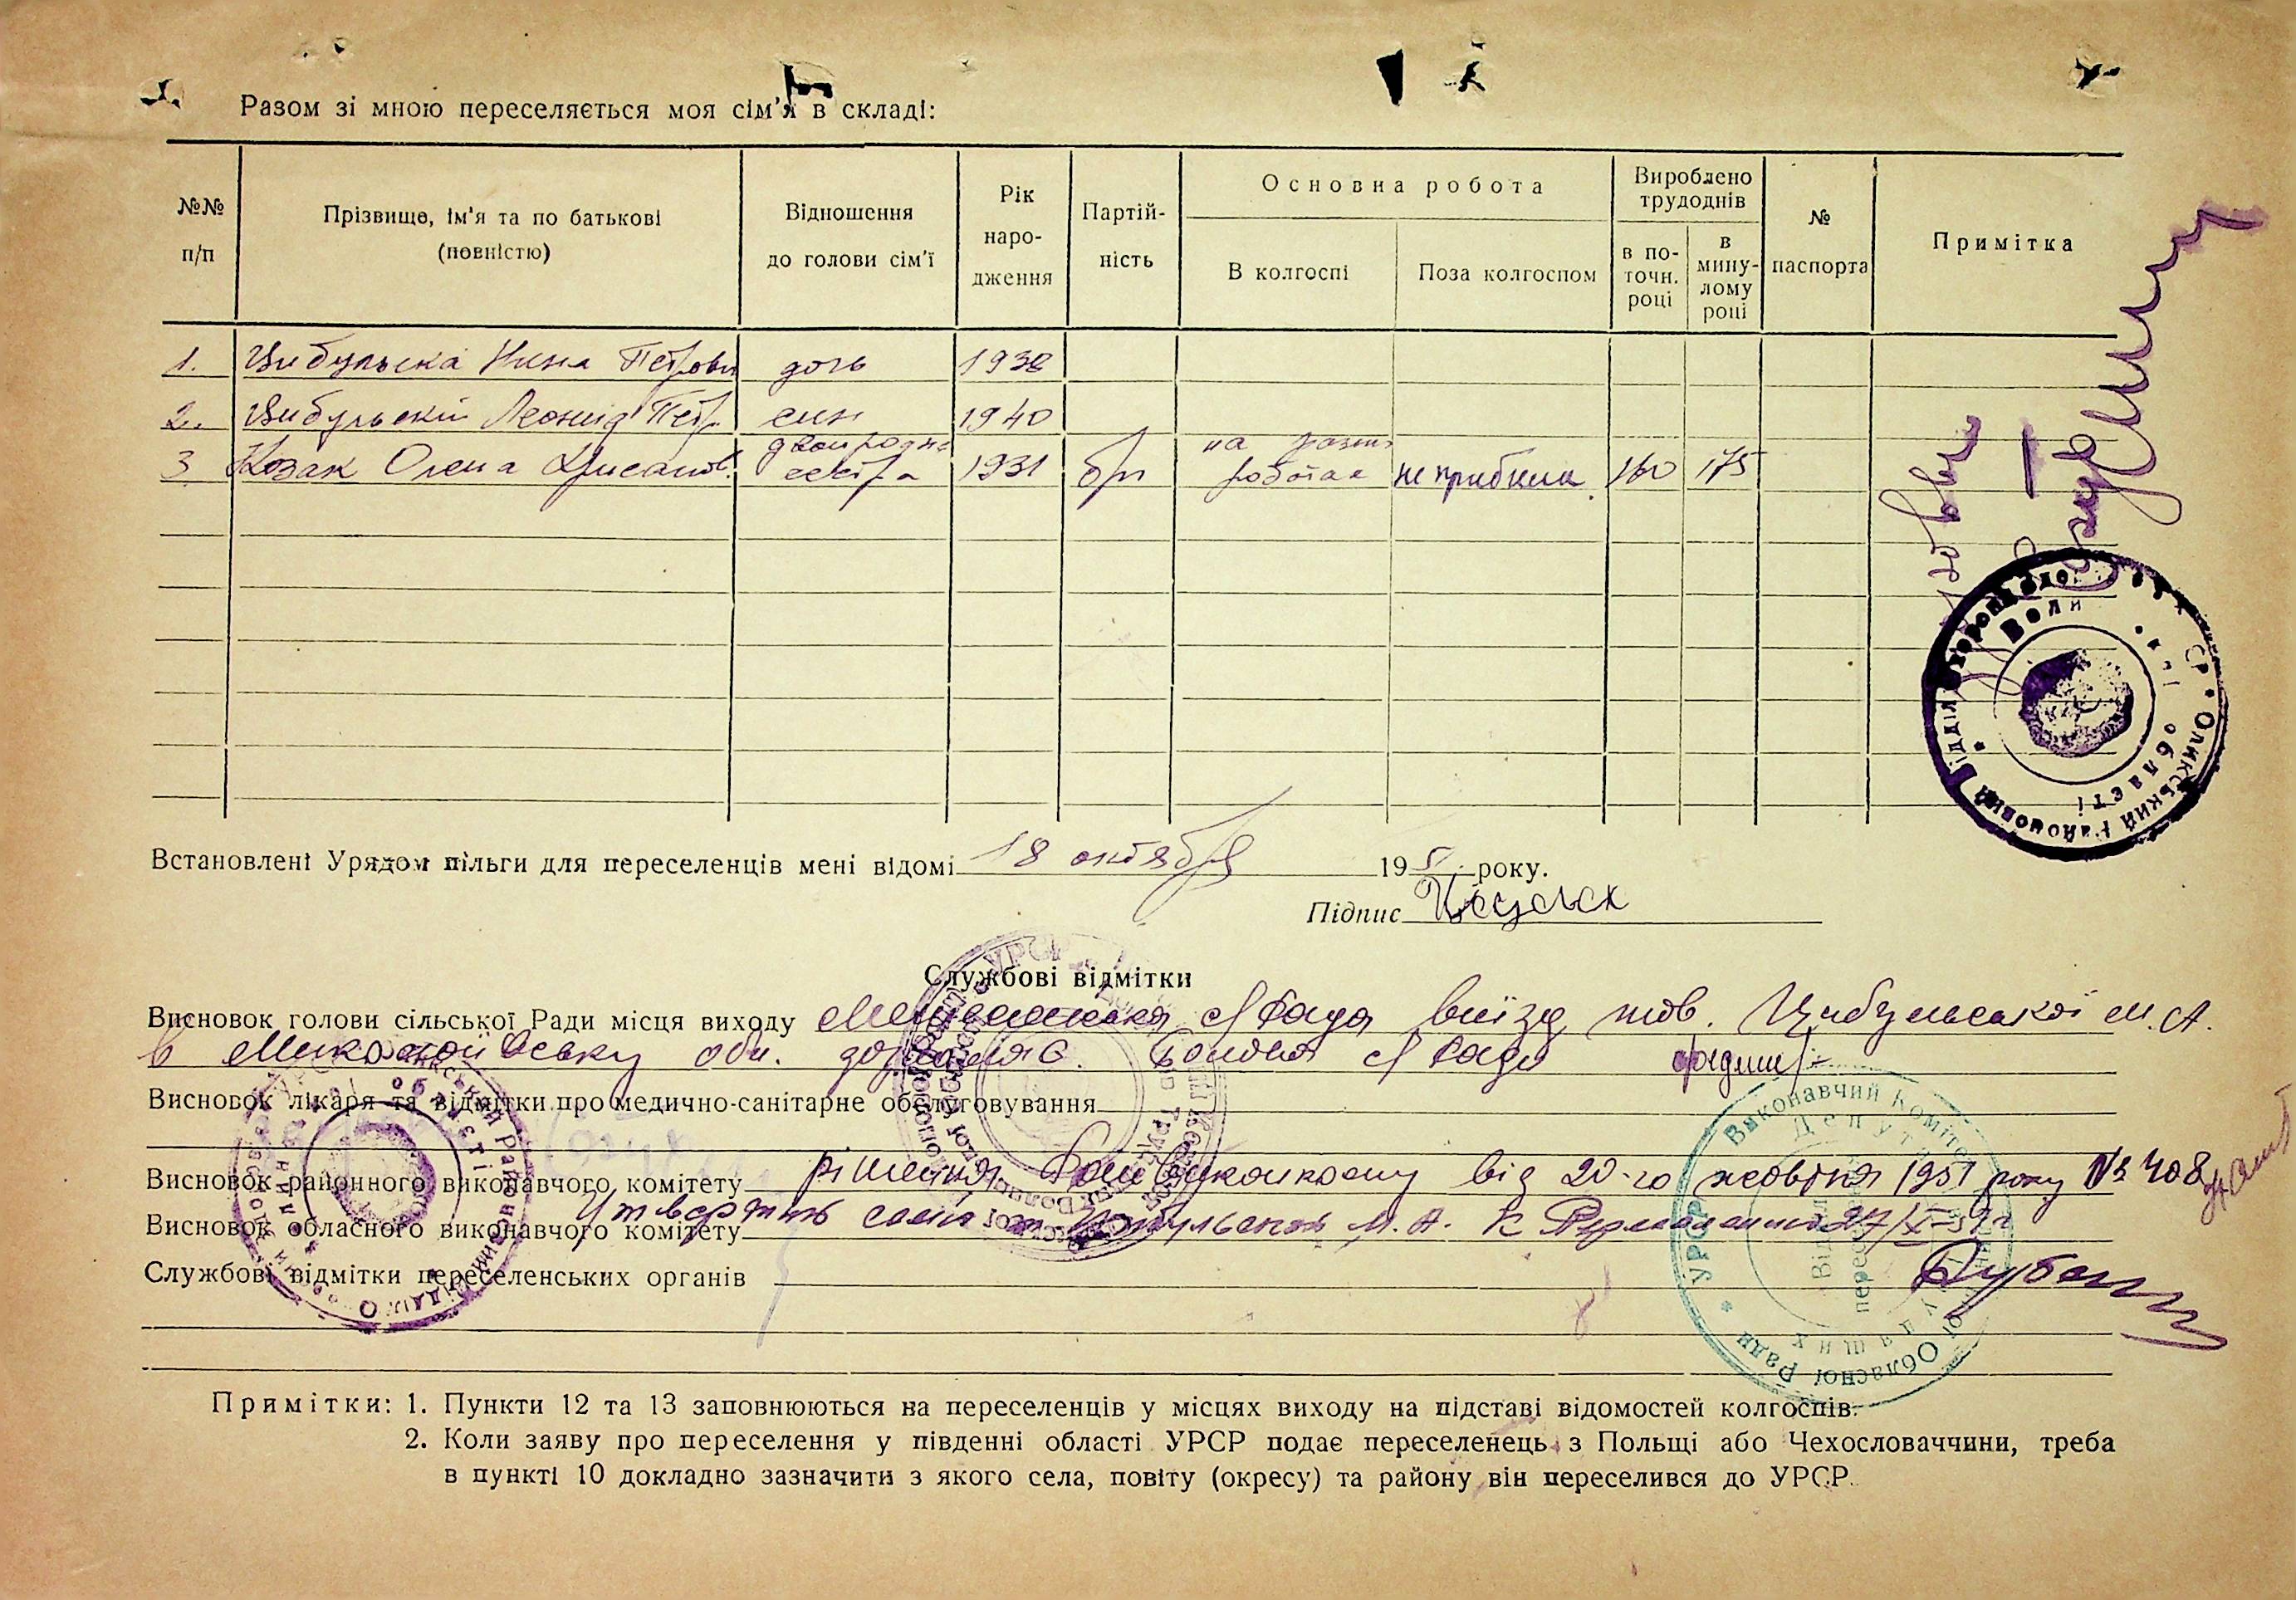 Разом зі мною переселяється моя сім'я в складі:
№№ п/п
Прізвище, ім'я та по батькові (повністю)
Відношення до голови сім'ї
Рік народження
Партійність
Основна робота
В колгоспі
Поза колгоспом
Вироблено трудоднів
в поточн. році
в минулому році
№ паспорта
Примітка
1. Цибульска Нина Петровн дочь 1938
2. Цибульский Леонид Петр. син 1940
3 Козак Олена двоюродна сестра 1931 бп на разних роботах не прибили 160 175
Встановлені Урядом пільги для переселенців мені відомі 18 октября 195 року.
Підпис
Службові відмітки
Висновок голови сільської Ради місця виходу с/Рада виїзд тов. Цибульської М. А.
в Миколаївську обл. дозволяє. Голова с/Ради
Висновок лікаря та відмітки про медично-санітарне обслуговування
Висновок районного виконавчого комітету рішення Райвиконкому від 20-го жовтня 1951 року № 408
Висновок обласного виконавчого комітету Утвердить М. А. к 27/X-51 г
Службові відмітки переселенських органів
Примітки: 1. Пункти 12 та 13 заповнюються на переселенців у місцях виходу на підставі відомостей колгоспів.
2. Коли заяву про переселення у південні області УРСР подає переселенець з Польщі або Чехословаччини, треба
в пункті 10 докладно зазначити з якого села, повіту (окресу) та району він переселився до УРСР.
Олицький районовий Відділ
області
Виконавчий Комітет
Обласної Ради
УРСР